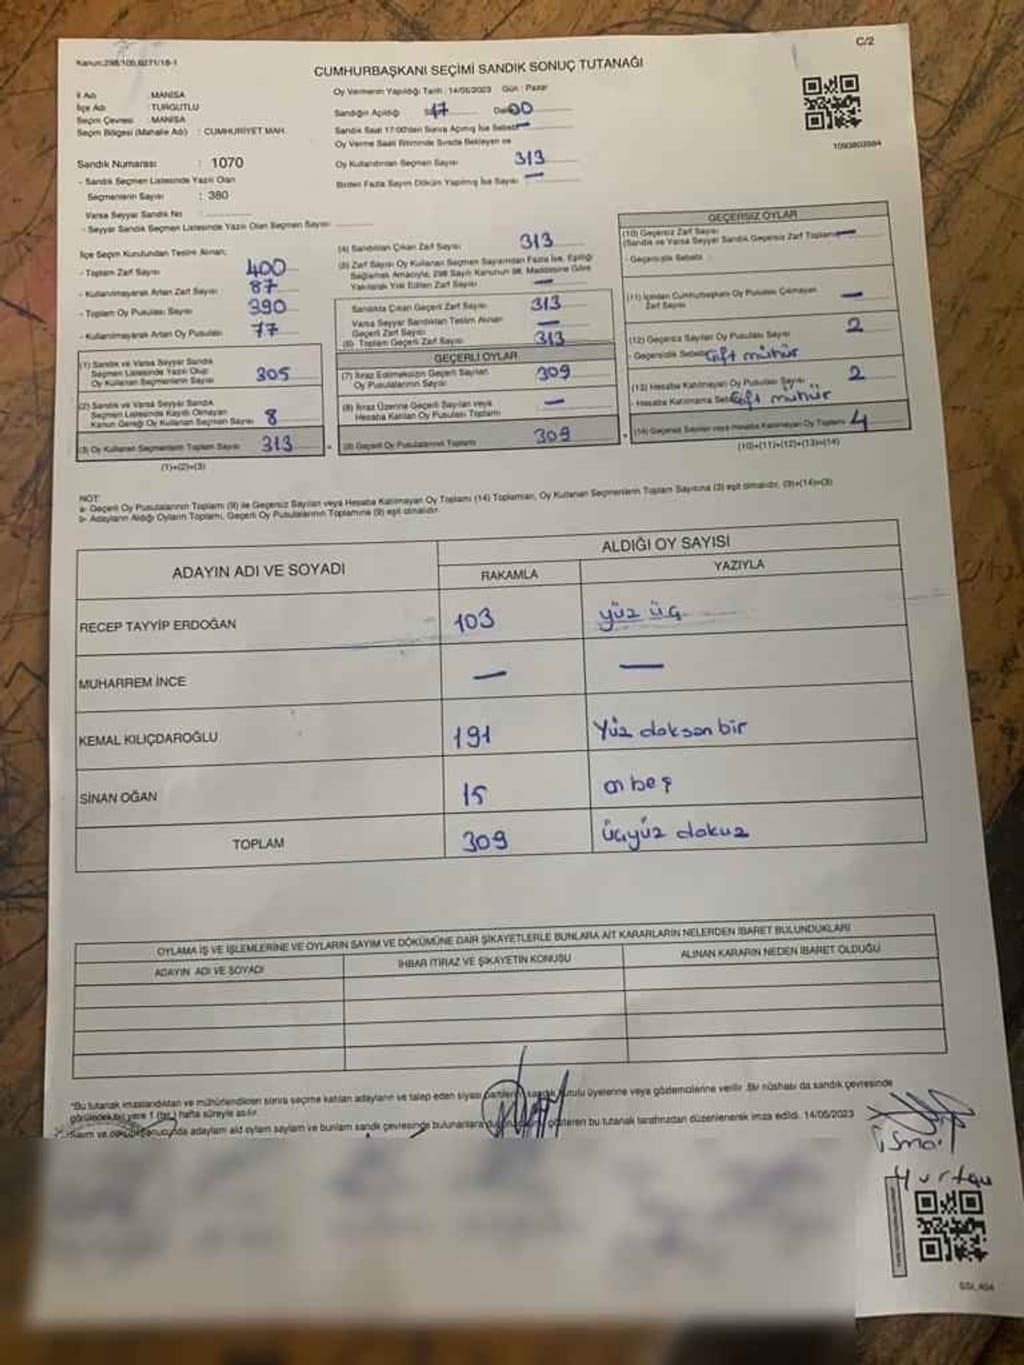 Kanun:298/105,6271/18-1
C/2
CUMHURBAŞKANI SEÇİMİ SANDIK SONUÇ TUTANAĞI
İl Adı : MANİSA
İlçe Adı : TURGUTLU
Seçim Çevresi : MANİSA
Seçim Bölgesi (Mahalle Adı) : CUMHURİYET MAH.
Sandık Numarası : 1070
- Sandık Seçmen Listesinde Yazılı Olan
Seçmenlerin Sayısı : 380
Varsa Seyyar Sandık No :
- Seyyar Sandık Seçmen Listesinde Yazılı Olan Seçmen Sayısı :
Oy Vermenin Yapıldığı Tarih : 14/05/2023 Gün : Pazar
Sandığın Açıldığı 17 00
Sandık Saat 17:00'den Sonra Açılmış İse Sebebi —
Oy Verme Saati Bitiminde Sırada Bekleyen ve
Oy Kullandırılan Seçmen Sayısı 313
Birden Fazla Sayım Döküm Yapılmış İse Sayısı —
1093803584
İlçe Seçim Kurulundan Teslim Alınan;
- Toplam Zarf Sayısı 400
- Kullanılmayarak Artan Zarf Sayısı 87
- Toplam Oy Pusulası Sayısı 390
- Kullanılmayarak Artan Oy Pusulası 77
(1) Sandık ve Varsa Seyyar Sandık
Seçmen Listesinde Yazılı Olup
Oy Kullanan Seçmenlerin Sayısı 305
(2) Sandık ve Varsa Seyyar Sandık
Seçmen Listesinde Kayıtlı Olmayan
Kanun Gereği Oy Kullanan Seçmen Sayısı 8
(3) Oy Kullanan Seçmenlerin Toplam Sayısı 313
(1)+(2)=(3)
(4) Sandıktan Çıkan Zarf Sayısı 313
(5) Zarf Sayısı Oy Kullanan Seçmen Sayısından Fazla İse, Eşitliği
Sağlamak Amacıyla, 298 Sayılı Kanunun 98. Maddesine Göre
Yakılarak Yok Edilen Zarf Sayısı —
Sandıkta Çıkan Geçerli Zarf Sayısı 313
Varsa Seyyar Sandıktan Teslim Alınan
Geçerli Zarf Sayısı —
(6) Toplam Geçerli Zarf Sayısı 313
GEÇERLİ OYLAR
(7) İtiraz Edilmeksizin Geçerli Sayılan
Oy Pusulalarının Sayısı 309
(8) İtiraz Üzerine Geçerli Sayılan veya
Hesaba Katılan Oy Pusulası Toplamı —
(9) Geçerli Oy Pusulalarının Toplamı 309
GEÇERSİZ OYLAR
(10) Geçersiz Zarf Sayısı
(Sandık ve Varsa Seyyar Sandık Geçersiz Zarf Toplamı —
- Geçersizlik Sebebi :
(11) İçinden Cumhurbaşkanı Oy Pusulası Çıkmayan
Zarf Sayısı —
(12) Geçersiz Sayılan Oy Pusulası Sayısı 2
- Geçersizlik Sebebi Çift mühür
(13) Hesaba Katılmayan Oy Pusulası Sayısı 2
- Hesaba Katılmama Sebebi Çift mühür
(14) Geçersiz Sayılan veya Hesaba Katılmayan Oy Toplamı 4
(10)+(11)+(12)+(13)=(14)
NOT:
a- Geçerli Oy Pusulalarının Toplamı (9) ile Geçersiz Sayılan veya Hesaba Katılmayan Oy Toplamı (14) Toplamları, Oy Kullanan Seçmenlerin Toplam Sayısına (3) eşit olmalıdır. (9)+(14)=(3)
b- Adayların Aldığı Oyların Toplamı, Geçerli Oy Pusulalarının Toplamına (9) eşit olmalıdır.
ADAYIN ADI VE SOYADI
ALDIĞI OY SAYISI
RAKAMLA YAZIYLA
RECEP TAYYİP ERDOĞAN 103 yüz üç
MUHARREM İNCE — —
KEMAL KILIÇDAROĞLU 191 Yüz doksan bir
SİNAN OĞAN 15 on beş
TOPLAM 309 üçyüz dokuz
OYLAMA İŞ VE İŞLEMLERİNE VE OYLARIN SAYIM VE DÖKÜMÜNE DAİR ŞİKAYETLERLE BUNLARA AİT KARARLARIN NELERDEN İBARET BULUNDUKLARI
ADAYIN ADI VE SOYADI İHBAR İTİRAZ VE ŞİKAYETİN KONUSU ALINAN KARARIN NEDEN İBARET OLDUĞU
"Bu tutanak imzalandıktan ve mühürlendikten sonra seçime katılan adayların ve talep eden siyasi partilerin sandık kurulu üyelerine veya gözlemcilerine verilir. Bir nüshası da sandık çevresinde
görülecek bir yere 1 (bir) hafta süreyle asılır.
gösteren bu tutanak tarafımızdan düzenlenerek imza edildi. 14/05/2023